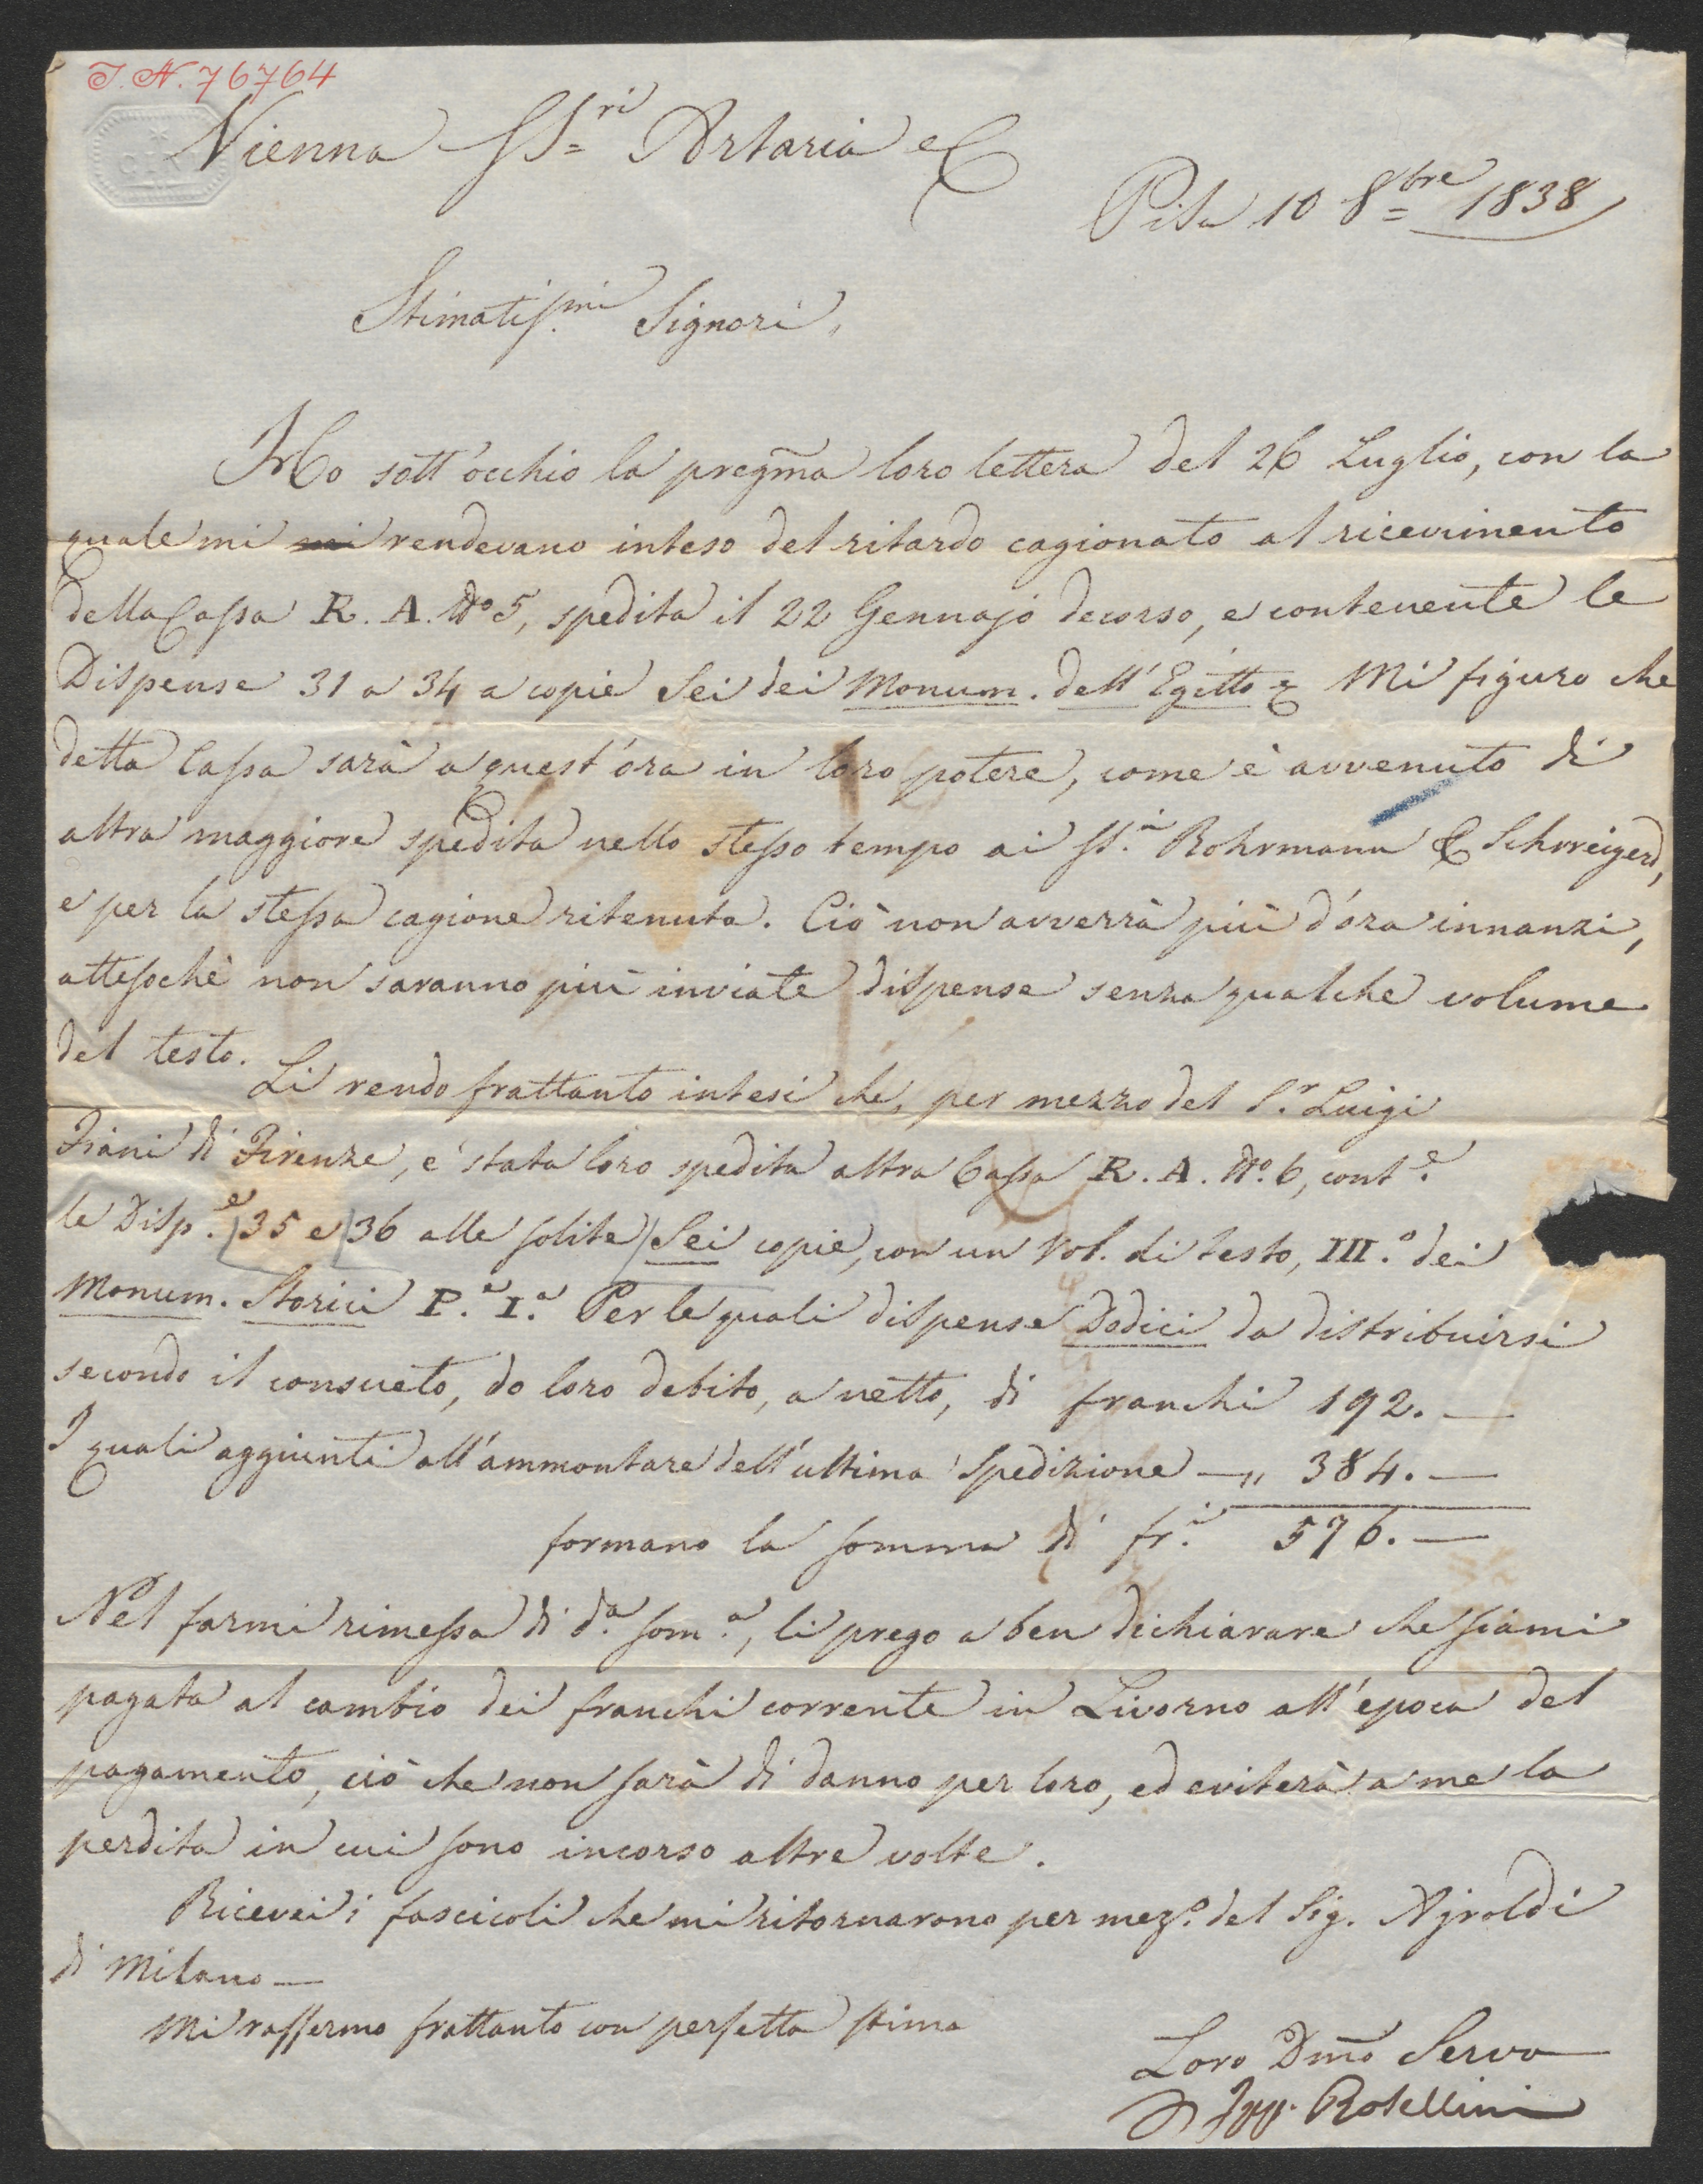 I.N. 76764
Vienna SS.ri Artaria e C
Pisa 10 8bre 1838
Stimatiss.mi Signori,
Ho sott'occhio la pregma loro lettera del 26 Luglio, con la
quale mi mi rendevano inteso del ritardo cagionato al ricevimento
della Cassa R. A. No 5, spedita il 22 Gennajo decorso, e contenente le
Dispense 31 a 34 a copie Sei dei Monum. dell'Egitto & Mi figuro che
detta Cassa sarà a quest'ora in loro potere, come è avvenuto di
altra maggiore spedita nello stesso tempo ai SS.i Rohrmann & Schweigerd,
e per la stessa cagione ritenuta. Ciò non avverrà più d'ora innanzi,
attesochè non saranno più inviate dispense senza qualche volume
del testo.
Li rendo frattanto intesi che, per mezzo del S.r Luigi
Fiani di Firenze, è stata loro spedita altra Cassa R. A. No. 6, cont.e
le Disp.e 35 e 36 alle solite Sei copie, con un Vol. di testo, III.o dei
Monum. Storici P.e I.a Per le quali dispense Dodici da distribuirsi
secondo il consueto, do loro debito, a netto, di franchi 192. —
I quali aggiunti all'ammontare dell'ultima spedizione — „ 384. —
formano la somma di fr.i 576. —
Nel farmi rimessa di d.a som.a, li prego a ben dichiarare che siami
pagata al cambio dei franchi corrente in Livorno all'epoca del
pagamento, ciò che non sarà di danno per loro, ed eviterà a me la
perdita in cui sono incorso altre volte.
Ricevei i fascicoli che mi ritornarono per mez.o del Sig. Ajroldi
di Milano —
Mi raffermo frattanto con perfetta stima
Loro Dmo Servo
Ipp. Rosellini